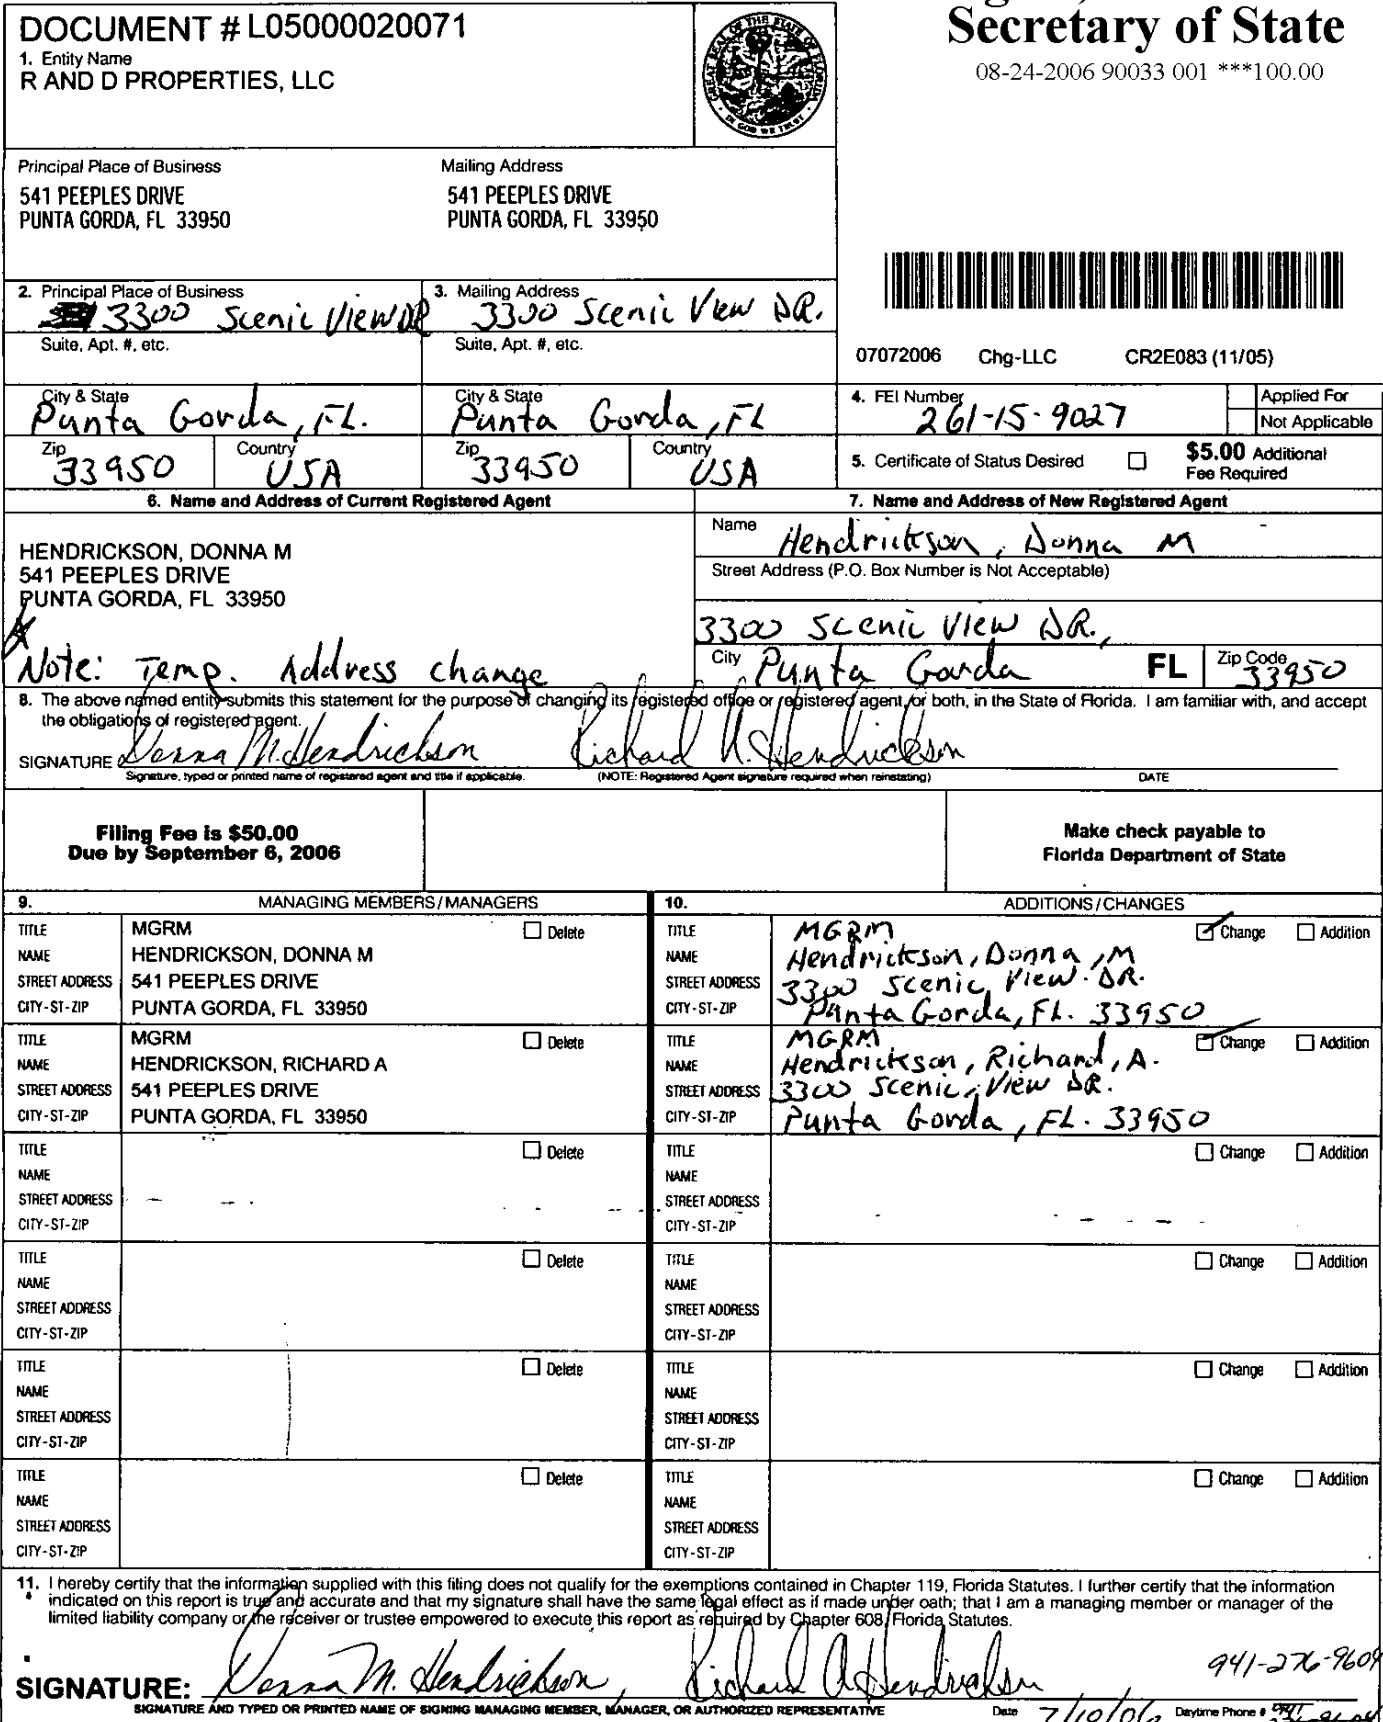 Secretary of State
08-24-2006 90033 001 ***100.00
DOCUMENT # L05000020071
1. Entity Name
R AND D PROPERTIES, LLC
GREAT SEAL OF THE STATE OF FLORIDA
IN GOD WE TRUST
Principal Place of Business
541 PEEPLES DRIVE
PUNTA GORDA, FL 33950
Mailing Address
541 PEEPLES DRIVE
PUNTA GORDA, FL 33950
2. Principal Place of Business
3300 Scenic View DR
3. Mailing Address
3300 Scenic View DR.
Suite, Apt. #, etc.
Suite, Apt. #, etc.
07072006 Chg-LLC CR2E083 (11/05)
City & State
Punta Gorda, FL.
City & State
Punta Gorda, FL
4. FEI Number
261-15-9027
Applied For
Not Applicable
Zip
33950
Country
USA
Zip
33950
Country
USA
5. Certificate of Status Desired
$5.00 Additional
Fee Required
6. Name and Address of Current Registered Agent
HENDRICKSON, DONNA M
541 PEEPLES DRIVE
PUNTA GORDA, FL 33950
Note: Temp. Address change
7. Name and Address of New Registered Agent
Name
Hendrickson, Donna M
Street Address (P.O. Box Number is Not Acceptable)
3300 Scenic View DR.,
City Punta Gorda FL Zip Code 33950
8. The above named entity submits this statement for the purpose of changing its registered office or registered agent, or both, in the State of Florida. I am familiar with, and accept
the obligations of registered agent.
SIGNATURE Donna M. Hendrickson Richard A. Hendrickson
Signature, typed or printed name of registered agent and title if applicable. (NOTE: Registered Agent signature required when reinstating) DATE
Filing Fee is $50.00
Due by September 6, 2006
Make check payable to
Florida Department of State
9. MANAGING MEMBERS/MANAGERS
TITLE MGRM Delete
NAME HENDRICKSON, DONNA M
STREET ADDRESS 541 PEEPLES DRIVE
CITY-ST-ZIP PUNTA GORDA, FL 33950
TITLE MGRM Delete
NAME HENDRICKSON, RICHARD A
STREET ADDRESS 541 PEEPLES DRIVE
CITY-ST-ZIP PUNTA GORDA, FL 33950
TITLE Delete
NAME
STREET ADDRESS
CITY-ST-ZIP
TITLE Delete
NAME
STREET ADDRESS
CITY-ST-ZIP
TITLE Delete
NAME
STREET ADDRESS
CITY-ST-ZIP
TITLE Delete
NAME
STREET ADDRESS
CITY-ST-ZIP
10. ADDITIONS/CHANGES
TITLE MGRM Change Addition
NAME Hendrickson, Donna, M
STREET ADDRESS 3300 Scenic View DR.
CITY-ST-ZIP Punta Gorda, FL. 33950
TITLE MGRM Change Addition
NAME Hendrickson, Richard, A.
STREET ADDRESS 3300 Scenic View DR.
CITY-ST-ZIP Punta Gorda, FL. 33950
TITLE Change Addition
NAME
STREET ADDRESS
CITY-ST-ZIP
TITLE Change Addition
NAME
STREET ADDRESS
CITY-ST-ZIP
TITLE Change Addition
NAME
STREET ADDRESS
CITY-ST-ZIP
TITLE Change Addition
NAME
STREET ADDRESS
CITY-ST-ZIP
11. I hereby certify that the information supplied with this filing does not qualify for the exemptions contained in Chapter 119, Florida Statutes. I further certify that the information
indicated on this report is true and accurate and that my signature shall have the same legal effect as if made under oath; that I am a managing member or manager of the
limited liability company or the receiver or trustee empowered to execute this report as required by Chapter 608, Florida Statutes.
941-276-9604
SIGNATURE: Donna M. Hendrickson, Richard A Hendrickson
SIGNATURE AND TYPED OR PRINTED NAME OF SIGNING MANAGING MEMBER, MANAGER, OR AUTHORIZED REPRESENTATIVE Date 7/10/06 Daytime Phone #